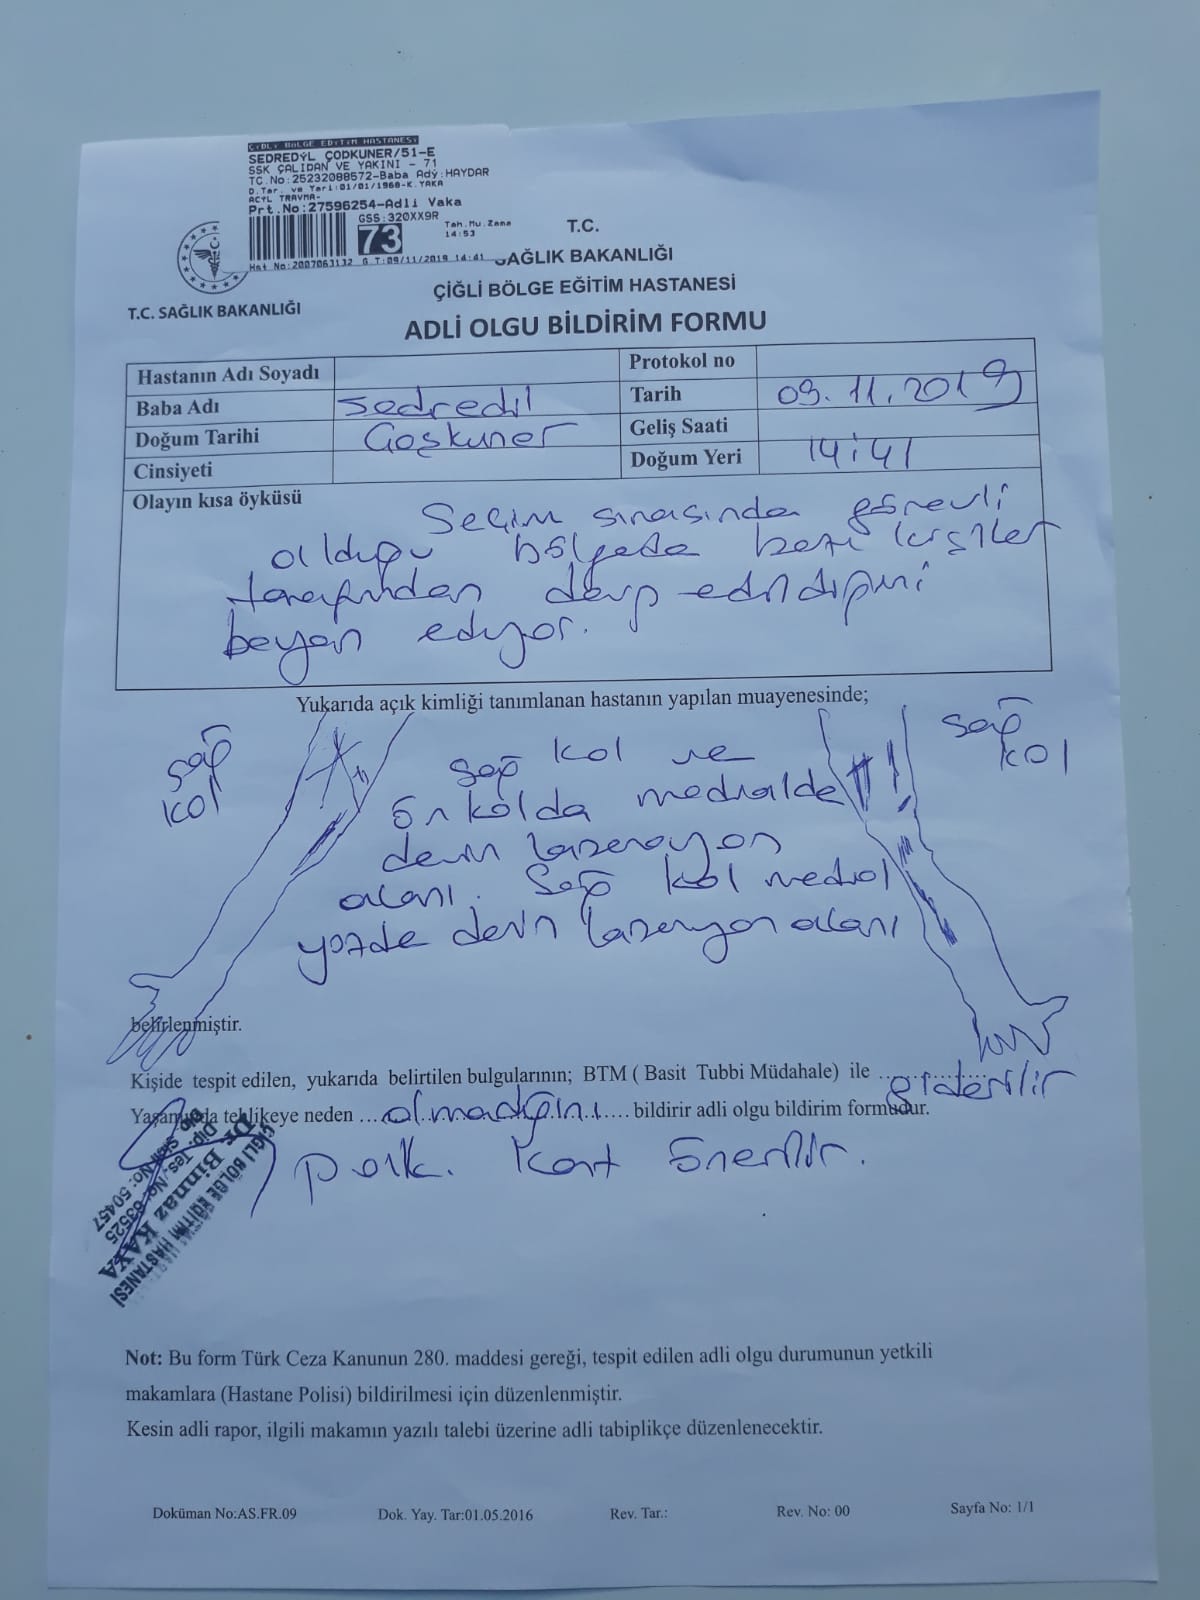 ÇYDLY BOLGE EDYTYM HASTANESY
SEDREDYL ÇODKUNER/51-E
SSK ÇALIDAN VE YAKINI - 71
TC.No:25232088572-Baba Ady:HAYDAR
D.Tar. ve Yeri:01/01/1968-K.YAKA
ACYL TRAVMA-
Prt.No:27596254-Adli Vaka
GSS:320XX9R
73
Tah.Mu.Zama
14:53
Hst No:2007063132 G.T:09/11/2019 14:41
T.C.
SAĞLIK BAKANLIĞI
ÇİĞLİ BÖLGE EĞİTİM HASTANESİ
T.C. SAĞLIK BAKANLIĞI
ADLİ OLGU BİLDİRİM FORMU
Hastanın Adı Soyadı Protokol no
Baba Adı Sedredil Tarih 09.11.2019
Doğum Tarihi Coşkuner Geliş Saati
Cinsiyeti Doğum Yeri 14:41
Olayın kısa öyküsü
Seçim sırasında görevli
olduğu bölgede bazı kişiler
tarafından darp edildiğini
beyan ediyor.
Yukarıda açık kimliği tanımlanan hastanın yapılan muayenesinde;
sağ
kol
sağ
kol
Sağ kol ve
ön kolda medialde
derin laserasyon
alanı. Sağ kol medial
yüzde derin laserasyon alanı
belirlenmiştir.
Kişide tespit edilen, yukarıda belirtilen bulgularının; BTM ( Basit Tubbi Müdahale) ile ..............giderilir
Yaşamında tehlikeye neden ....olmadığını..... bildirir adli olgu bildirim formudur.
Kont önerilir.
ÇİĞLİ BÖLGE EĞİTİM HASTANESİ
Dr. Binnaz KAYA
Dip. Tes. No: 63525
Dip. Sicil No: 50457
Not: Bu form Türk Ceza Kanunun 280. maddesi gereği, tespit edilen adli olgu durumunun yetkili
makamlara (Hastane Polisi) bildirilmesi için düzenlenmiştir.
Kesin adli rapor, ilgili makamın yazılı talebi üzerine adli tabiplikçe düzenlenecektir.
Doküman No:AS.FR.09 Dok. Yay. Tar:01.05.2016 Rev. Tar.: Rev. No: 00 Sayfa No: 1/1